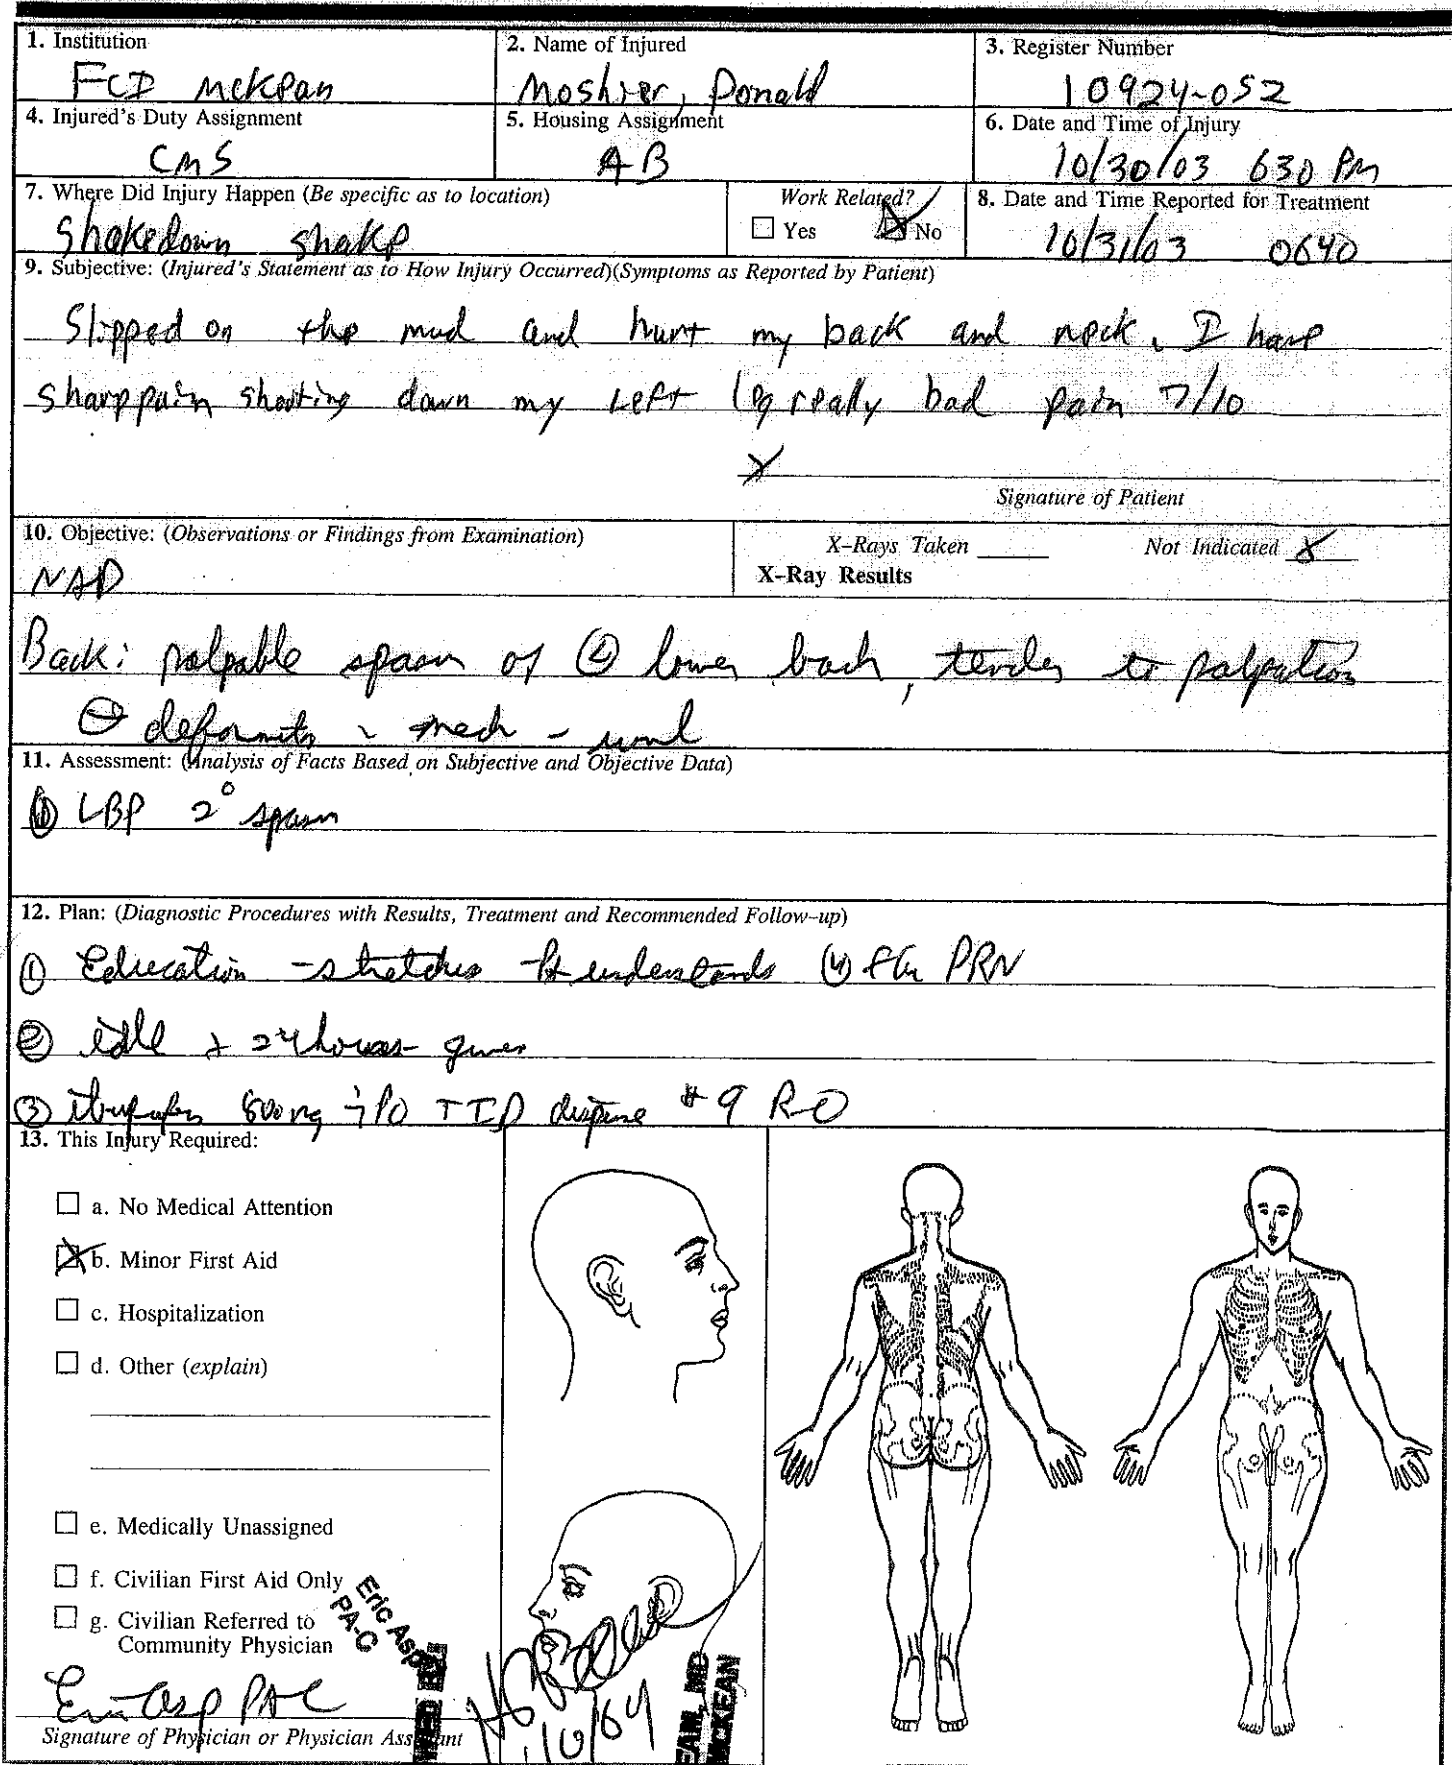 1. Institution
FCI McKean
2. Name of Injured
Moshier, Donald
3. Register Number
10924-052
4. Injured's Duty Assignment
CMS
5. Housing Assignment
AB
6. Date and Time of Injury
10/30/03 630 PM
7. Where Did Injury Happen (Be specific as to location)
Shakedown shake
Work Related?
Yes No
8. Date and Time Reported for Treatment
10/31/03 0640
9. Subjective: (Injured's Statement as to How Injury Occurred)(Symptoms as Reported by Patient)
Slipped on the mud and hurt my back and neck. I have
sharp pain shooting down my left leg really bad pain 7/10
X
Signature of Patient
10. Objective: (Observations or Findings from Examination)
NAD
X-Rays Taken Not Indicated X
X-Ray Results
Back: palpable spasm of Ⓛ lower back, tender to palpation
⊖ deformity
11. Assessment: (Analysis of Facts Based on Subjective and Objective Data)
① LBP 2° spasm
12. Plan: (Diagnostic Procedures with Results, Treatment and Recommended Follow-up)
① Education - stretches Pt understands (4) PRN
② idle x 24 hours - given
③ ibuprofen 800 mg PO TID dispense #9 R-0
13. This Injury Required:
a. No Medical Attention
b. Minor First Aid
c. Hospitalization
d. Other (explain)
e. Medically Unassigned
f. Civilian First Aid Only
g. Civilian Referred to
Community Physician
Eric Asp
PA-C
Eric Asp PAC
Signature of Physician or Physician Assistant
EAM, MD
MCKEAN